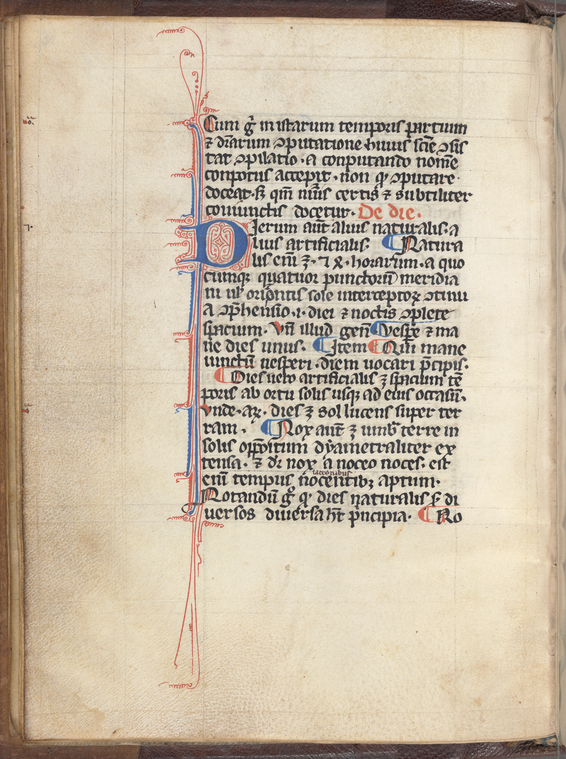 Cum g̊ in istarum temporis partium
⁊ dr̄arum ꝯputatione huius scīe ꝯsis
tat ꝯpilatio · a conputando nomē
conpotus accepit · non ꝙ ꝯputare ·
doceat · sꝫ qm̄ nūis certis ⁊ subtiliter
coniunctis docetur · De die ·
Dierum aut̄ alius naturalis · a
lius artificialis · ¶ Natura
lis em̄ ÷ horarum · a quo
cumqꝫ quatuor punctorū meridia
ni orizontis sole intercepto ꝯtinu
a ꝯp̄hensio · i · diei ⁊ noctis ꝯplete
spatium · Vn̄ illud gen̄ ¶ Vesꝑe ⁊ ma
ne dies unus · ¶ Item ¶ Qui mane
iunctū uesperi · diem uocari p̄cipis ·
¶ Dies uero artificialis ÷ spatium tē
poris ab ortu solis usqꝫ ad eius occasū ·
Vnde · ar · dies ÷ sol lucens super ter
ram · ¶ Nox aut̄ ÷ umb̾ terre in
solis opp̄oitum dyametraliter ex
tensa · ⁊ dr̄ nox a noceo noces · est
em̄ tempus nocentibꝫ aptum ·
latronibus
Notandū g̊ ꝙ dies naturalis s̄ di
uersos diuersa hn̄t p̄ncipia · ¶ No